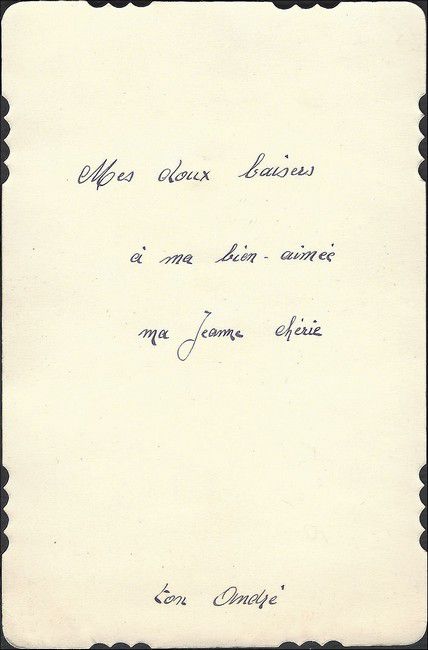 Mes doux baisers
à ma bien-aimée
ma Jeanne chérie
ton André